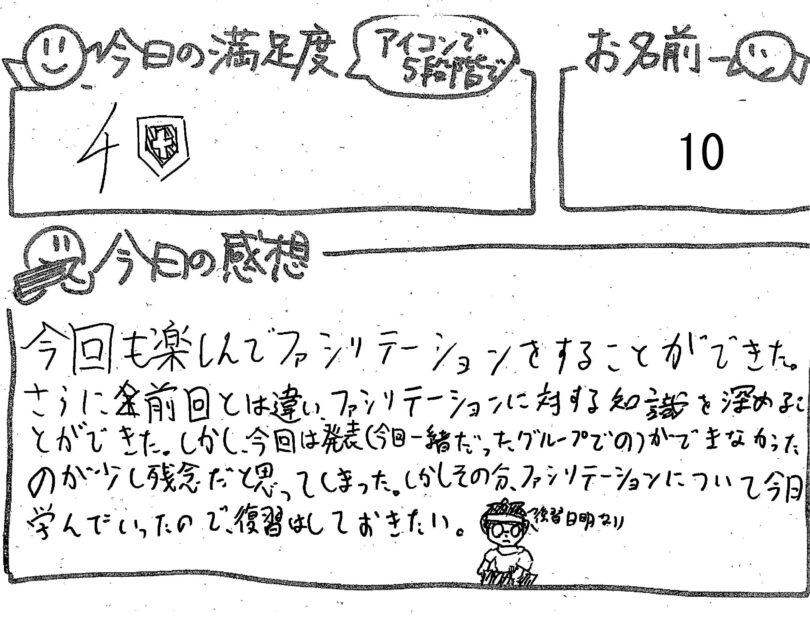 今日の満足度
アイコンで
5段階で
お名前
4
10
今日の感想
今回も楽しんでファシリテーションをすることができた。
さらに前回とは違い、ファシリテーションに対する知識を深めるこ
とができた。しかし、今回は発表(今回一緒だったグループでの)ができなかった
のが少し残念だと思ってしまった。しかしその分、ファシリテーションについて今日
学んでいったので、復習はしておきたい。
復習